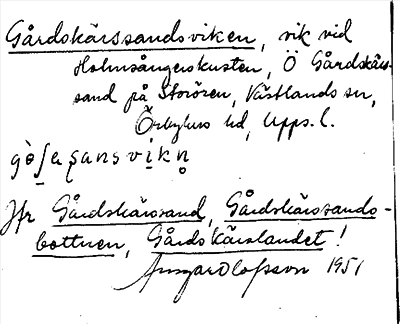 Gårdskärssandsviken, vik vid
Holmsångerskusten, Ö Gårdskärs-
sand på Storören, Västlands sn,
Örbyhus hd, Upps. l.
Jfr Gårdskärssand, Gårdskärssands-
bottnen, Gårdskärslandet!
Ansgar Olofsson 1951